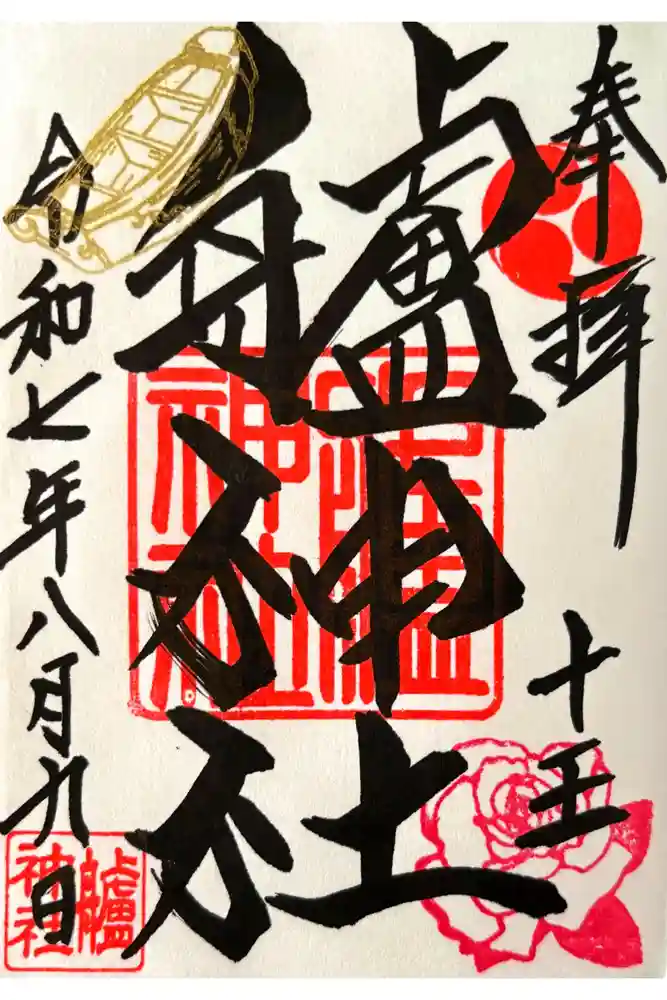 奉拝
十王
艫神社
艫神社
令和七年八月九日
艫神社